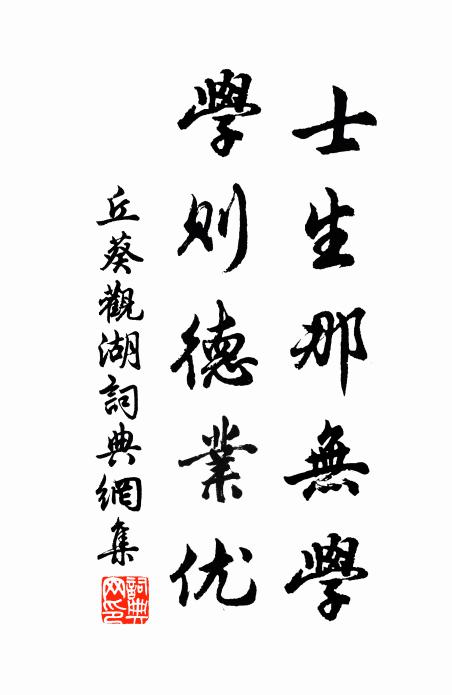 士生那無學
學則德業优
丘葵觀湖詞典網集
詞典網印